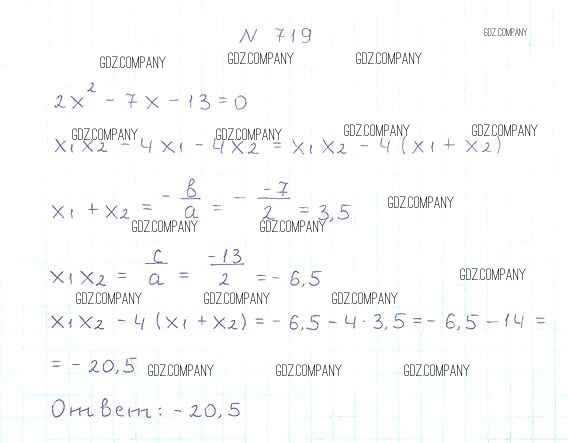 N 719
GDZ.COMPANY
GDZ.COMPANY GDZ.COMPANY GDZ.COMPANY
2x² - 7x - 13 = 0
GDZ.COMPANY GDZ.COMPANY GDZ.COMPANY GDZ.COMPANY
x₁x₂ - 4x₁ - 4x₂ = x₁x₂ - 4(x₁ + x₂)
x₁ + x₂ = - в/a = - -7/2 = 3,5
GDZ.COMPANY
GDZ.COMPANY GDZ.COMPANY
x₁x₂ = c/a = -13/2 = - 6,5
GDZ.COMPANY
GDZ.COMPANY GDZ.COMPANY GDZ.COMPANY
x₁x₂ - 4(x₁ + x₂) = - 6,5 - 4 · 3,5 = - 6,5 - 14 =
= - 20,5
GDZ.COMPANY GDZ.COMPANY GDZ.COMPANY
Ответ: - 20,5